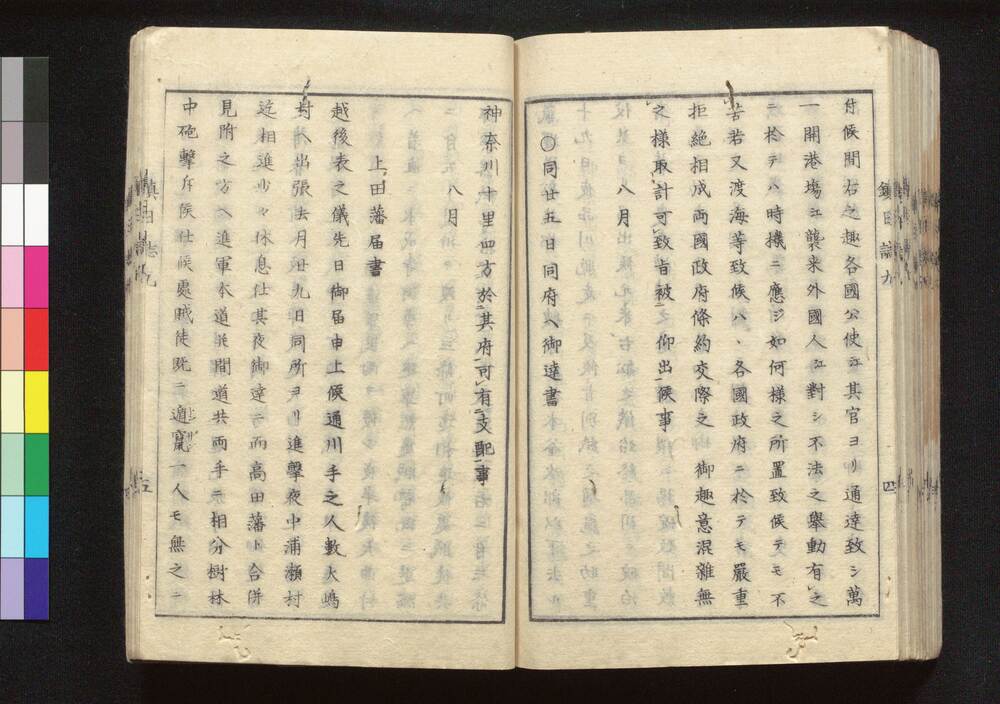 付候間右之趣各國公使江其官ヨリ通達致シ萬
一開港場江襲来外國人江對シ不法之舉動有之
ニ於テハ時機ニ應ジ如何様之所置致候テモ不
苦若又渡海等致候ハヽ各國政府ニ於テモ嚴重
拒絶相成両國政府條約交際之御趣意混雜無
之様取計可致旨被仰出候事
八月
〇同廿五日同府ヘ御達書
神奈川十里四方於其府可有支配事
八月
上田藩届書
越後表之儀先日御届申上候通川手之人數大嶋
村ヘ出張去月廿九日同所ヨリ進擊夜中浦瀬村
迄相進少々休息仕其夜御達ニ而高田藩ト合併
見附之方ヘ進軍本道並間道共両手ニ相分樹林
中砲擊斥候仕候處賊徒既ニ遁竄一人モ無之ニ
鎮日誌九
四
五